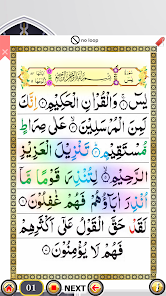 no loop
بِسْمِ اللَّهِ الرَّحْمَٰنِ الرَّحِيمِ
يٰسٓ ۝ وَالْقُرْاٰنِ الْحَكِيْمِ ۝ اِنَّكَ
لَمِنَ الْمُرْسَلِيْنَ ۝ عَلٰى صِرَاطٍ
مُّسْتَقِيْمٍ ۝ تَنْزِيْلَ الْعَزِيْزِ
الرَّحِيْمِ ۝ لِتُنْذِرَ قَوْمًا مَّآ
اُنْذِرَ اٰبَآؤُهُمْ فَهُمْ غٰفِلُوْنَ ۝
لَقَدْ حَقَّ الْقَوْلُ عَلٰٓى اَكْثَرِهِمْ
فَهُمْ لَا يُؤْمِنُوْنَ ۝
01 NEXT